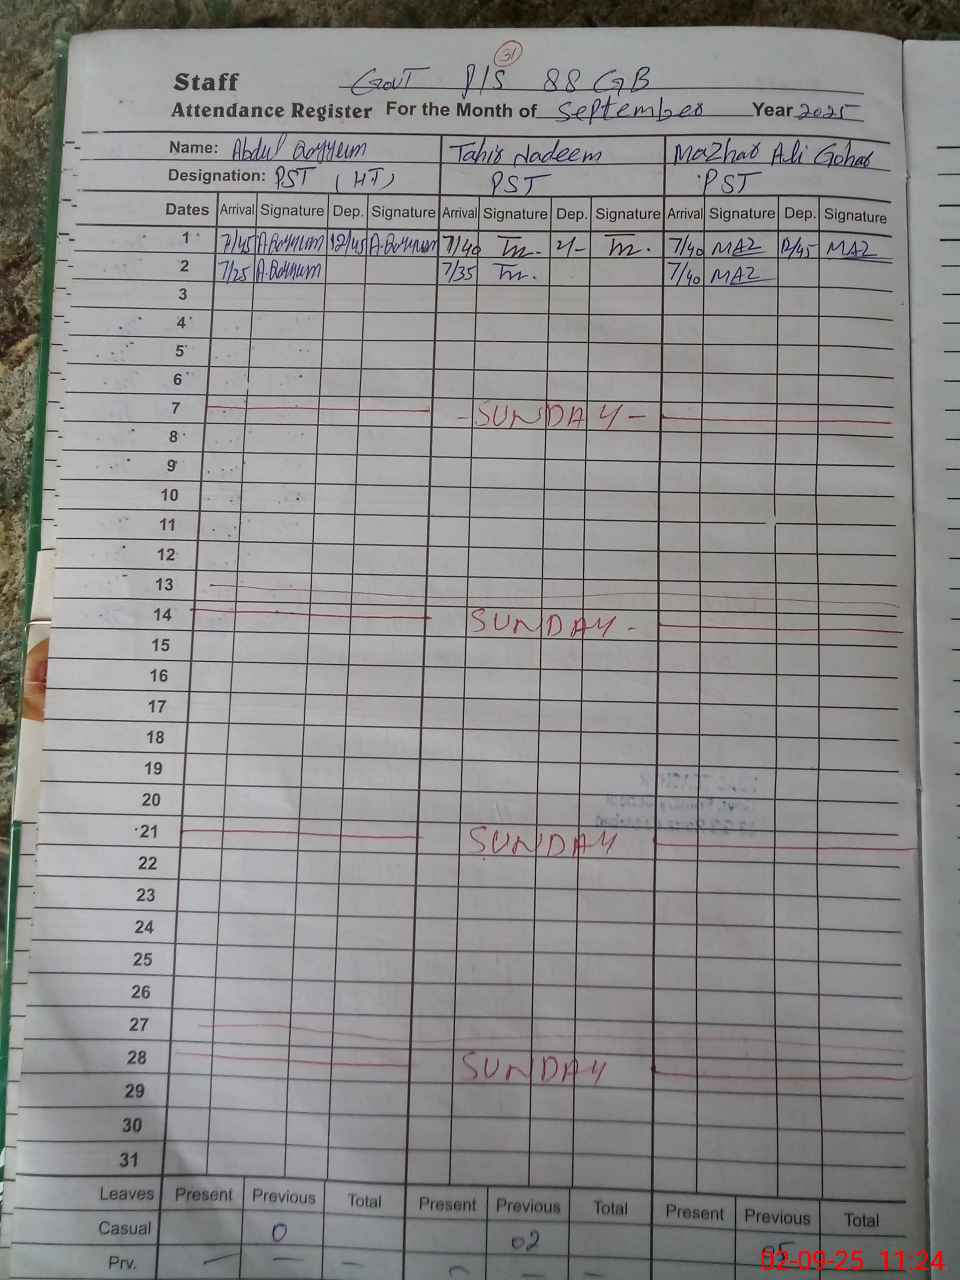 31
Staff Govt P/S 88 GB
Attendance Register For the Month of September Year 2025
Name: Abdul Qayyum Tahir Nadeem Mazhar Ali Gohar
Designation: PST (HT) PST PST
Dates Arrival Signature Dep. Signature Arrival Signature Dep. Signature Arrival Signature Dep. Signature
1 7/45 A.Qayyum 12/45 A.Qayyum 7/40 7/40 MAZ 12/45 MAZ
2 7/25 A.Qayyum 7/35 7/40 MAZ
3
4
5
6
7 - SUNDAY -
8
9
10
11
12
13
14 SUNDAY -
15
16
17
18
19
20
21 SUNDAY
22
23
24
25
26
27
28 SUNDAY
29
30
31
Leaves Present Previous Total Present Previous Total Present Previous Total
Casual 0 02 05
Prv. — — — — —
02-09-25 11:24